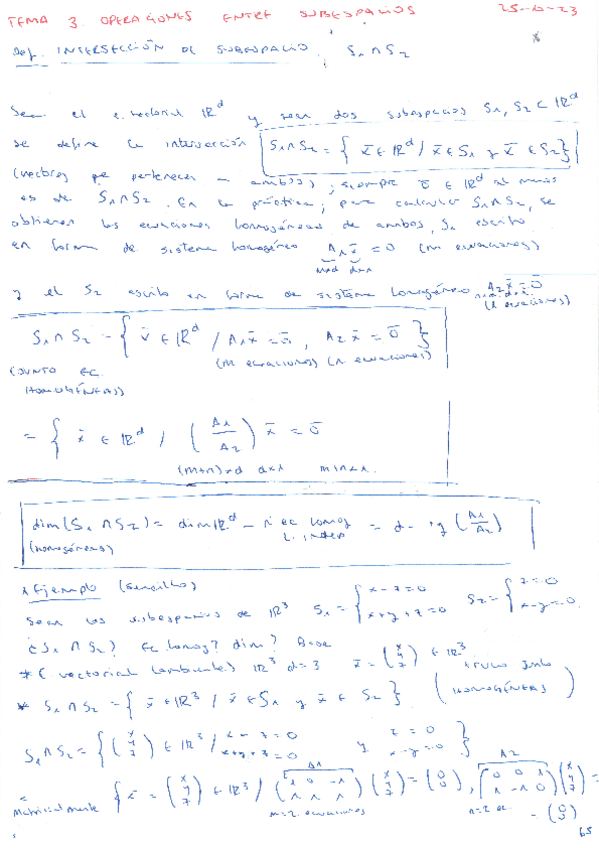 TEMA 3 OPERACIONES ENTRE SUBESPACIOS 25-10-23
Def. INTERSECCIÓN DE SUBESPACIO S₁ ∩ S₂
Sea el e. vectorial ℝᵈ y sean dos subespacios S₁, S₂ ⊂ ℝᵈ
se define la intersección S₁∩S₂ = { x̄ ∈ ℝᵈ / x̄ ∈ S₁ y x̄ ∈ S₂}
(vectores que pertenecen a ambos); siempre ō ∈ ℝᵈ al menos
es de S₁∩S₂. En la práctica, para calcular S₁∩S₂, se
obtienen las ecuaciones homogéneas de ambos, S₁ escrito
en forma de sistema homogéneo A₁x̄ = 0 (m ecuaciones)
mxd dx1
y el S₂ escrito en forma de sistema homogéneo A₂x̄ = ō
(n ecuaciones)
S₁∩S₂ = { v̄ ∈ ℝᵈ / A₁x̄ = ō, A₂x̄ = ō }
(m ecuaciones) (n ecuaciones)
(JUNTO EC.
HOMOGÉNEAS)
= { x̄ ∈ ℝᵈ / (A₁/A₂) x̄ = ō
(m+n)xd dx1 m+nx1.
dim(S₁∩S₂) = dim ℝᵈ - nº ec homog = d - rg (A₁/A₂)
(homogéneas) L. indep
* Ejemplo (sencillo)
Sean los subespacios de ℝ³ S₁ = { x-z=0 S₂ = { z=0
x+y+z=0 x-y=0.
¿S₁∩S₂? Ec. homog? dim? Base
* E. vectorial (ambiente) ℝ³ d=3 x̄ = (x y z) ∈ ℝ³
* S₁∩S₂ = { x̄ ∈ ℝ³ / x̄ ∈ S₁ y x̄ ∈ S₂ } (TRUCO junto
HOMOGÉNEAS)
S₁∩S₂ = { (x y z) ∈ ℝ³ / x-z=0 y z=0 }
x+y+z=0 x-y=0
A1 A2
= { x̄ = (x y z) ∈ ℝ³ / (1 0 -1 1 1 1) (x y z) = (0 0), (0 0 1 1 -1 0) (x y z) =
Matricialmente m=2 ecuaciones n=2 ec. = (0 0)
65